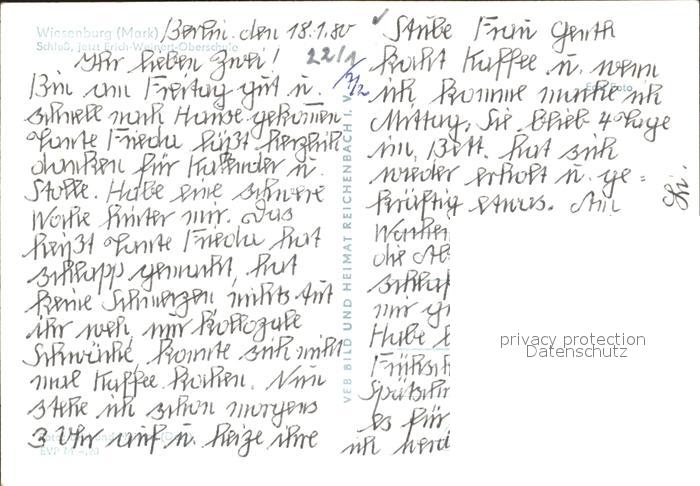 Wiesenburg (Mark)
Schloß, jetzt Erich-Weinert-Oberschule
Berlin, den 18.1.80
Ihr lieben Zwei!
22/1
Bin am Freitag gut u.
schnell nach Hause gekommen
Tante Frieda läßt herzlich
danken für Kalender u.
Stolle. Habe eine schwere
Woche hinter mir. Das
heißt Tante Frieda hat
schlapp gemacht, hat
keine Schmerzen nichts tut
ihr weh, nur kollozale
Schwäche, konnte sich nicht
mal Kaffee kochen. Nun
stehe ich schon morgens
3 Uhr auf u. heize ihre
EVP M
VEB BILD UND HEIMAT REICHENBACH I. V.
Stube Frau Genth
kocht Kaffee u. wenn
ich komme mache ich
Mittag. Sie blieb 4 Tage
im Bett. hat sich
wieder erholt u. ge=
kräftig etwas. Am
Wochen
die Ab
schlap
mir
Habe
Frühsch
Spätsch
es für
ich werd
privacy protection
Datenschutz